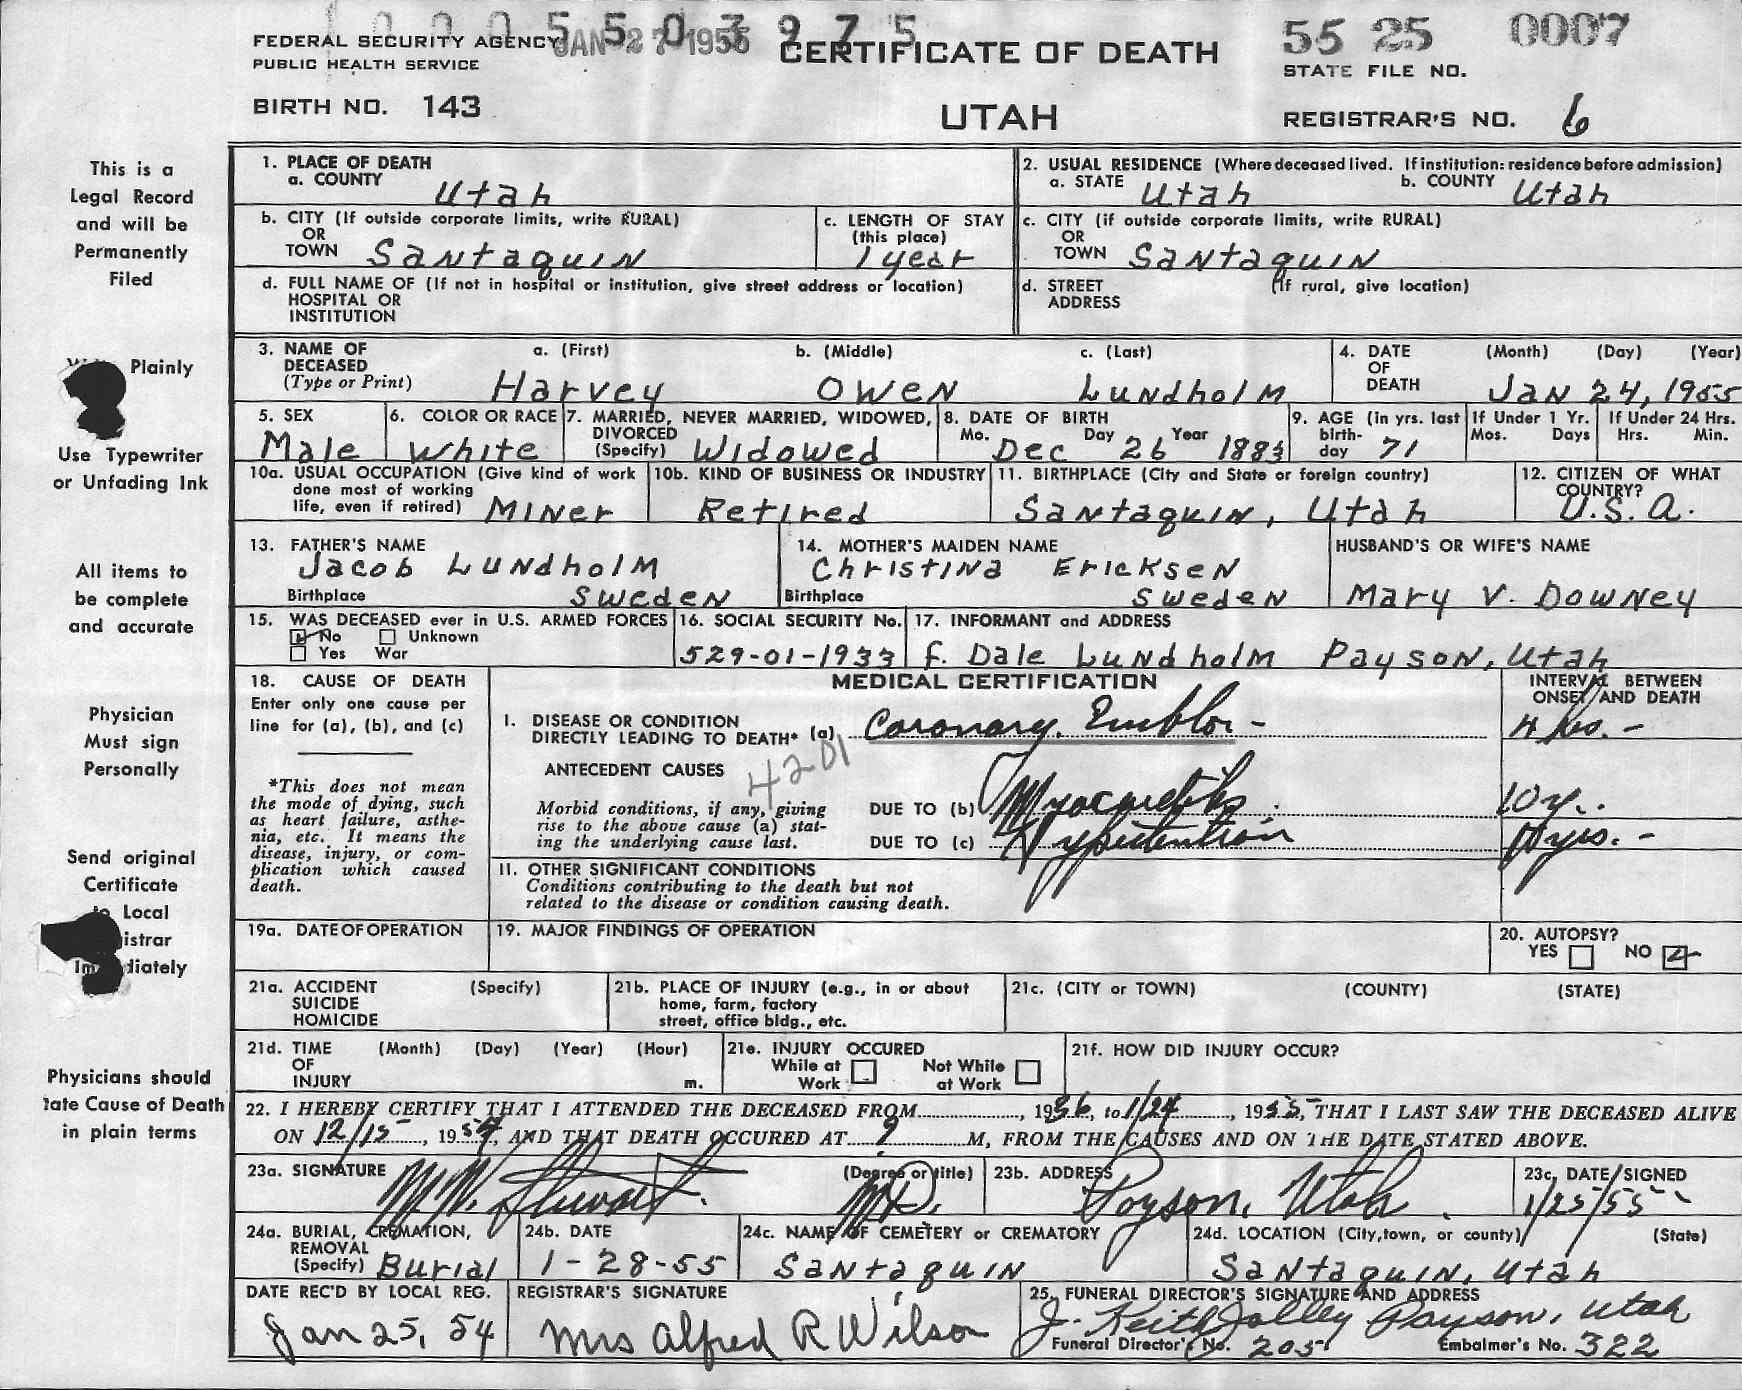 1 0 0 0 5 5 0 3 9 7 5
FEDERAL SECURITY AGENCY JAN 27 1955 CERTIFICATE OF DEATH 55 25 0007
PUBLIC HEALTH SERVICE STATE FILE NO.
BIRTH NO. 143 UTAH REGISTRAR'S NO. 6
This is a
Legal Record
and will be
Permanently
Filed
Plainly
Use Typewriter
or Unfading Ink
All items to
be complete
and accurate
Physician
Must sign
Personally
Send original
Certificate
to Local
istrar
diately
Physicians should
tate Cause of Death
in plain terms
1. PLACE OF DEATH
a. COUNTY Utah
2. USUAL RESIDENCE (Where deceased lived. If institution: residence before admission)
a. STATE Utah b. COUNTY Utah
b. CITY (If outside corporate limits, write RURAL)
OR
TOWN Santaquin
c. LENGTH OF STAY
(this place)
1 year
c. CITY (if outside corporate limits, write RURAL)
OR
TOWN Santaquin
d. FULL NAME OF (If not in hospital or institution, give street address or location)
HOSPITAL OR
INSTITUTION
d. STREET (If rural, give location)
ADDRESS
3. NAME OF a. (First) b. (Middle) c. (Last)
DECEASED
(Type or Print) Harvey Owen Lundholm
4. DATE (Month) (Day) (Year)
OF
DEATH Jan 24, 1955
5. SEX
Male
6. COLOR OR RACE
White
7. MARRIED, NEVER MARRIED, WIDOWED,
DIVORCED
(Specify) Widowed
8. DATE OF BIRTH
Mo. Day Year
Dec 26 1883
9. AGE (in yrs. last
birth-
day 71
If Under 1 Yr.
Mos. Days
If Under 24 Hrs.
Hrs. Min.
10a. USUAL OCCUPATION (Give kind of work
done most of working
life, even if retired) Miner
10b. KIND OF BUSINESS OR INDUSTRY
Retired
11. BIRTHPLACE (City and State or foreign country)
Santaquin, Utah
12. CITIZEN OF WHAT
COUNTRY?
U.S.A.
13. FATHER'S NAME
Jacob Lundholm
Birthplace Sweden
14. MOTHER'S MAIDEN NAME
Christina Ericksen
Birthplace Sweden
HUSBAND'S OR WIFE'S NAME
Mary V. Downey
15. WAS DECEASED ever in U.S. ARMED FORCES
No Unknown
Yes War
16. SOCIAL SECURITY No.
529-01-1933
17. INFORMANT and ADDRESS
F. Dale Lundholm Payson, Utah
18. CAUSE OF DEATH
Enter only one cause per
line for (a), (b), and (c)
*This does not mean
the mode of dying, such
as heart failure, asthe-
nia, etc. It means the
disease, injury, or com-
plication which caused
death.
MEDICAL CERTIFICATION
INTERVAL BETWEEN
ONSET AND DEATH
I. DISEASE OR CONDITION
DIRECTLY LEADING TO DEATH* (a) Coronary 4 hrs. -
ANTECEDENT CAUSES 4201
Morbid conditions, if any, giving
rise to the above cause (a) stat-
ing the underlying cause last.
DUE TO (b) Myocarditis 10 y.
DUE TO (c) Hypertension yrs. -
II. OTHER SIGNIFICANT CONDITIONS
Conditions contributing to the death but not
related to the disease or condition causing death.
19a. DATE OF OPERATION
19. MAJOR FINDINGS OF OPERATION
20. AUTOPSY?
YES NO
21a. ACCIDENT (Specify)
SUICIDE
HOMICIDE
21b. PLACE OF INJURY (e.g., in or about
home, farm, factory
street, office bldg., etc.
21c. (CITY or TOWN) (COUNTY) (STATE)
21d. TIME (Month) (Day) (Year) (Hour)
OF
INJURY m.
21e. INJURY OCCURED
While at Work Not While at Work
21f. HOW DID INJURY OCCUR?
22. I HEREBY CERTIFY THAT I ATTENDED THE DECEASED FROM , 1936, to 1/24 , 1955, THAT I LAST SAW THE DECEASED ALIVE
ON 12/15 , 1954, AND THAT DEATH OCCURED AT 9 M, FROM THE CAUSES AND ON THE DATE STATED ABOVE.
23a. SIGNATURE (Degree or title)
Stewart M.D.
23b. ADDRESS
Payson, Utah.
23c. DATE SIGNED
1/25/55
24a. BURIAL, CREMATION,
REMOVAL
(Specify) Burial
24b. DATE
1-28-55
24c. NAME OF CEMETERY or CREMATORY
Santaquin
24d. LOCATION (City, town, or county) (State)
Santaquin, Utah
DATE REC'D BY LOCAL REG.
Jan 25, 54
REGISTRAR'S SIGNATURE
Mrs Alfred R Wilson
25. FUNERAL DIRECTOR'S SIGNATURE AND ADDRESS
J. Keith Jolley Payson, Utah
Funeral Director's No. 205 Embalmer's No. 322